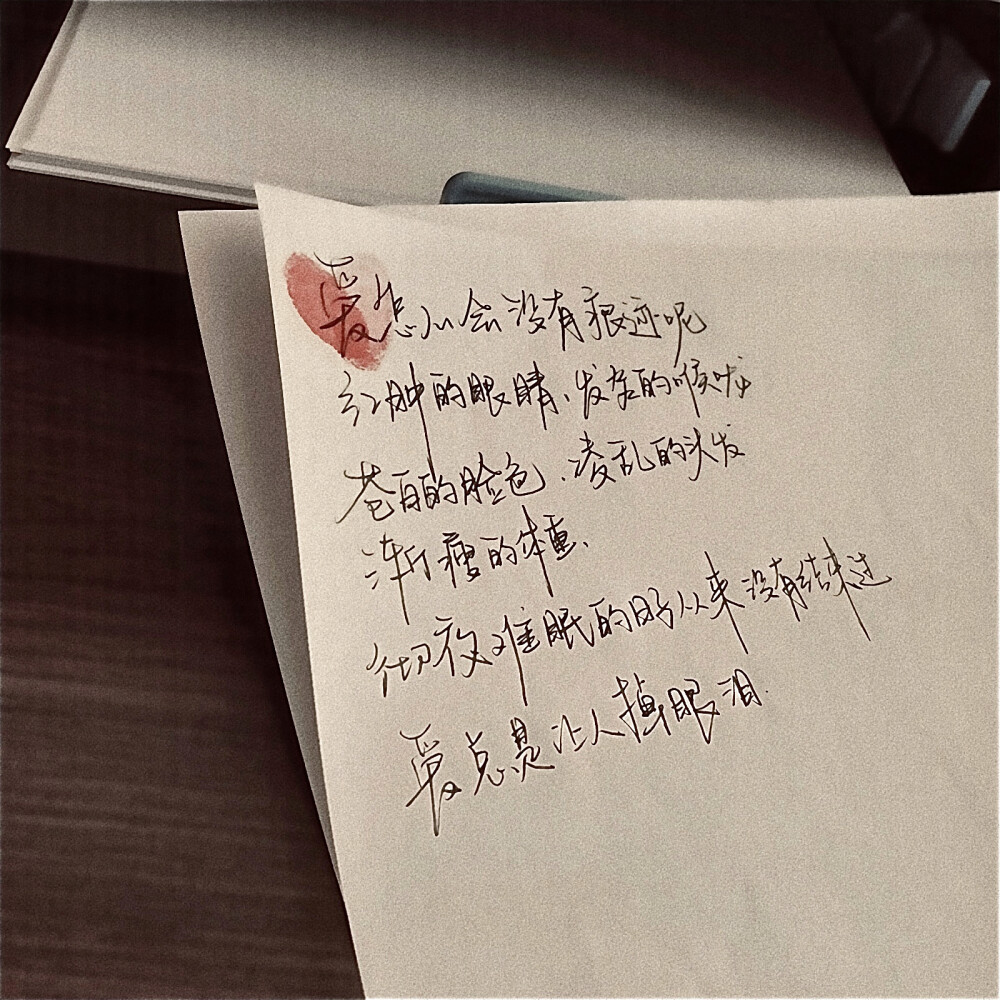 爱怎么会没有痕迹呢
红肿的眼睛、发杂的喉咙
苍白的脸色、凌乱的头发
渐瘦的体重、
彻夜难眠的日子从来没有结束过
爱总是让人掉眼泪.